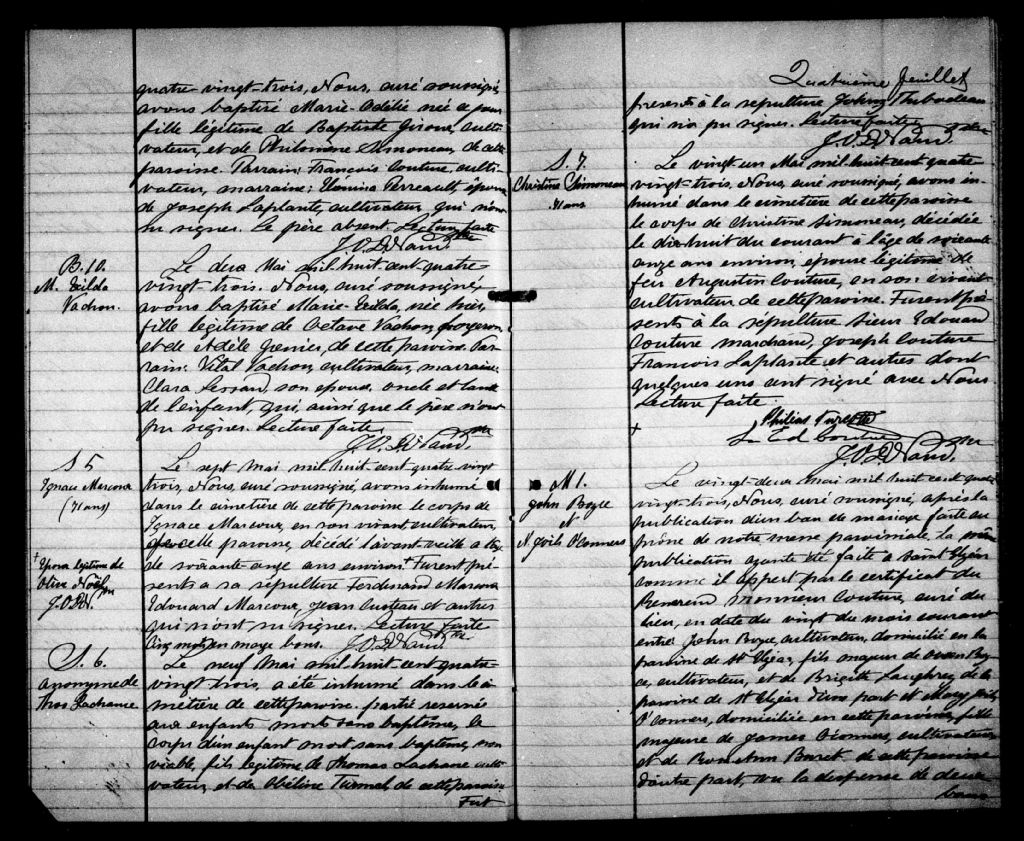 quatre vingt-trois, Nous, curé soussigné
avons baptisé Marie-Odélie née ce jour
fille légitime de Baptiste Giroux, culti-
vateur, et de Philomène Simoneau, de cette
paroisse. Parrain: François Couture, culti-
vateur, marraine: Perreault épouse
de Joseph Laplante, cultivateur, qui n'ont
pu signer. Le père absent. Lecture faite
B. 10.
M. Exilda
Vachon.
Le deux Mai mil huit-cent-quatre
vingt-trois. Nous, curé soussigné,
avons baptisé Marie-Exilda, née hier,
fille légitime de Octave Vachon, forgeron,
et de Adèle Grenier, de cette paroisse. Par-
rain: Vital Vachon, cultivateur, marraine:
Clara Lessard, son épouse, oncle et tante
de l'enfant, qui, ainsi que le père n'ont
pu signer. Lecture faite.
S 5
Ignace Marcoux
(71 ans)
Le sept Mai mil huit-cent quatre vingt
trois, Nous, curé soussigné, avons inhumé
dans le cimetière de cette paroisse le corps de
Ignace Marcoux, en son vivant cultivateur,
de cette paroisse, décédé l'avant-veille a l'age
de soixante-onze ans environ. Furent pré-
sents a sa sépulture Ferdinand Marcoux
Edouard Marcoux, Jean Custeau et autres
qui n'ont su signer. Lecture faite
Cinq mots en marge bons.
+ Epoux légitime de
Olive Noël
S. 6.
anonyme de
Thos Lachance
Le neuf Mai mil huit cent quatre-
vingt-trois, a été inhumé dans le ci-
metière de cette paroisse, partie réservée
aux enfants morts sans baptême, le
corps d'un enfant mort sans baptême, non
viable, fils légitime de Thomas Lachance culti-
vateur, et de Obéline Turmel de cette paroisse
Fut
Quatrième feuillet
présent à la sépulture Johny Thibodeau
qui n'a pu signer. Lecture faite
S. 7.
Christine Simoneau
71 ans
Le vingt un Mai mil huit cent quatre
vingt-trois, Nous, curé soussigné, avons in-
humé dans le cimetière de cette paroisse
le corps de Christine Simoneau, décédée
le dixhuit du courant à l'âge de soixante
onze ans environ, épouse légitime de
feu Augustin Couture, en son vivant
cultivateur de cette paroisse. Furent pré-
sents à la sépulture Sieur Edouard
Couture marchand, Joseph Couture
François Laplante et autres dont
quelques uns ont signé avec Nous
Lecture faite.
Philias
Ed Couture
M 1.
John Boyce
et
O'Conners
Le vingt-deux Mai mil huit cent quatre
vingt-trois, Nous, curé soussigné, après la
publication d'un ban de mariage faite au
prône de notre messe paroissiale, la même
publication ayant été faite a Saint Elzéar
comme il appert par le certificat du
Révérend Monsieur Couture, curé du
lieu, en date du vingt du mois courant
entre John Boyce, cultivateur, domicilié en la
paroisse de St Elzéar, fils majeur de Boy-
ce, cultivateur, et de Brigitte Laughrey de la
paroisse de St Elzéar d'une part et Mary
O'Conners, domiciliée en cette paroisse, fille
majeure de James O'Conners, cultivateur
et de Rose Ann de cette paroisse
d'autre part, vu la dispense de deux
bans